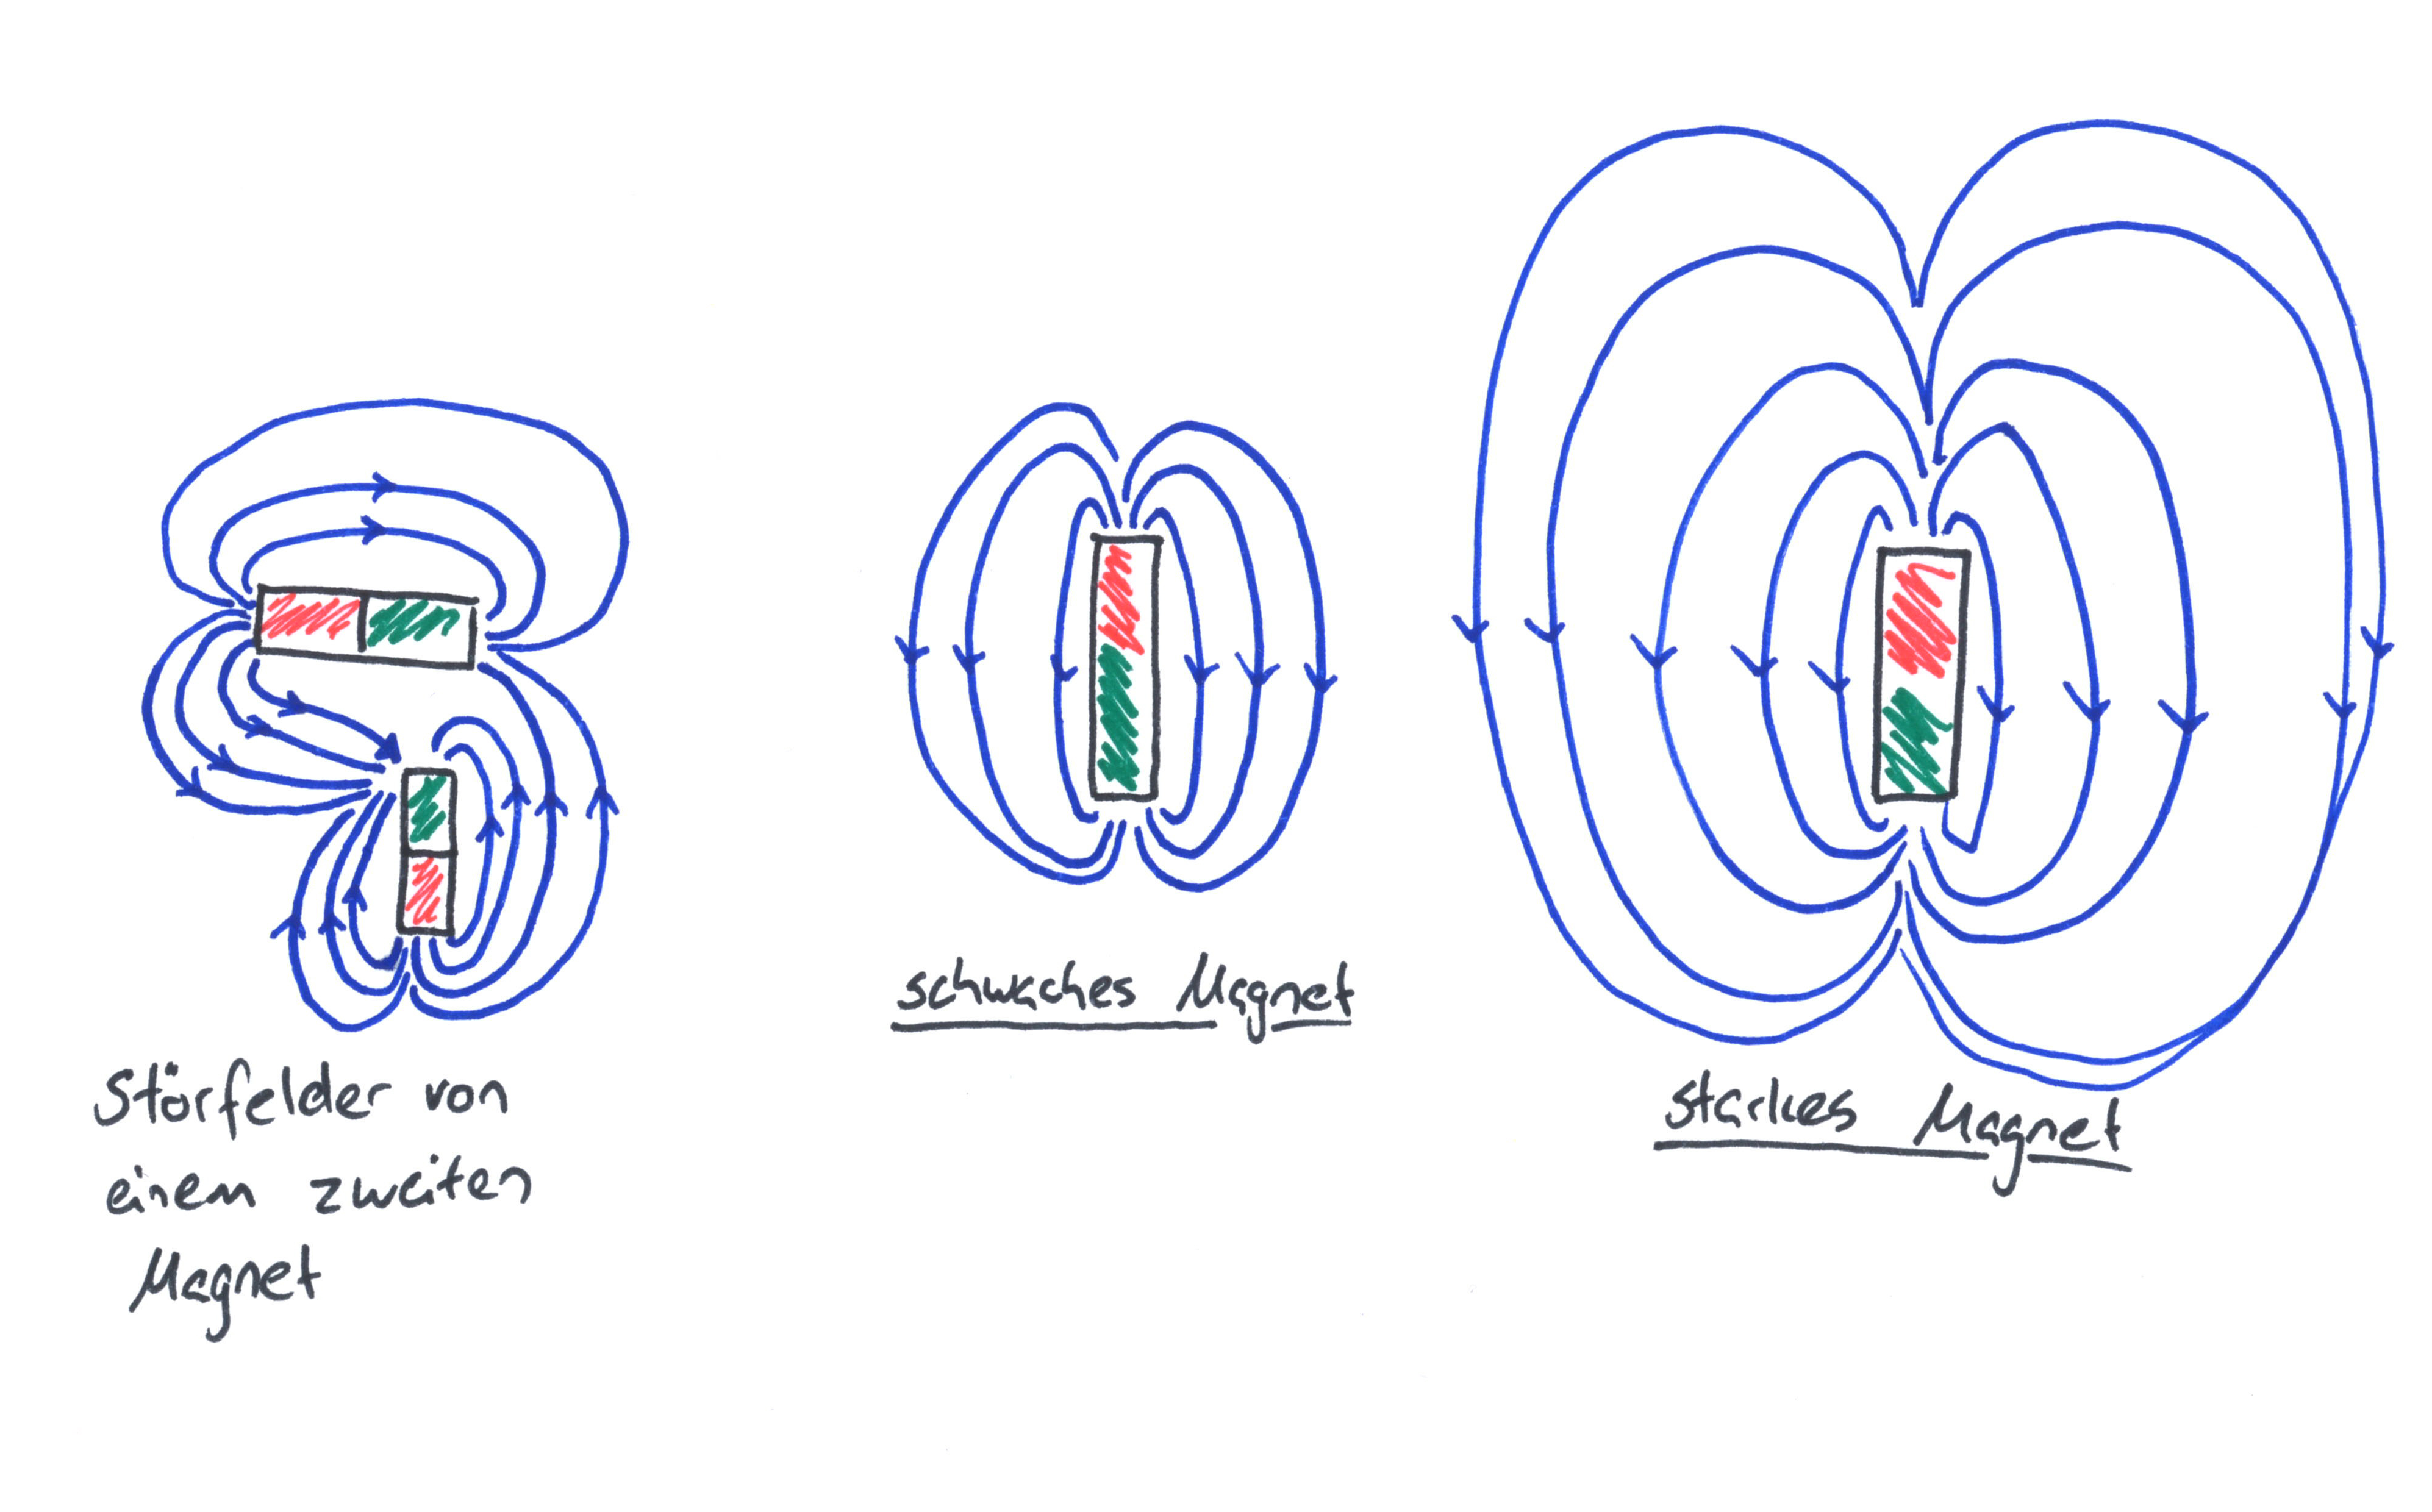 Störfelder von
einem zweiten
Magnet
schwaches Magnet
starkes Magnet